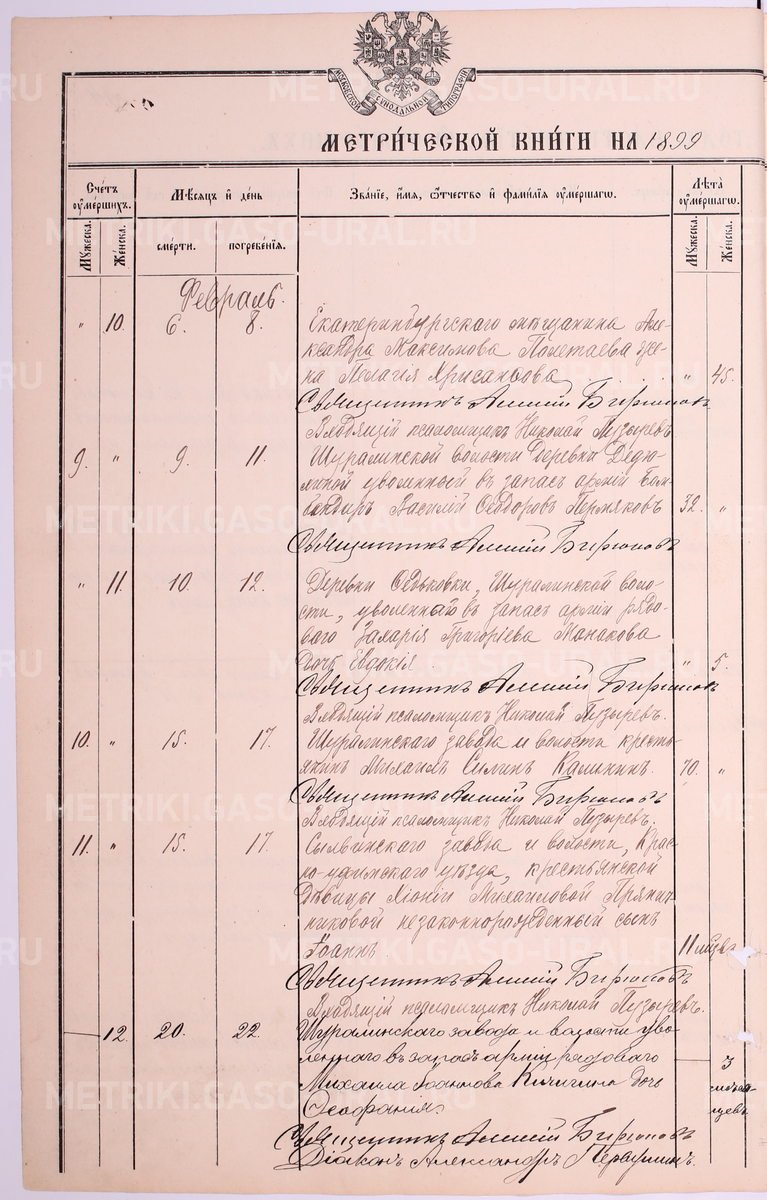 МОСКОВСКОЙ СѴНОДАЛЬНОЙ ТИПОГРАФІИ
МЕТРИ́ЧЕСКОЙ КНИ́ГИ НА 1899
Сче́тъ ᲂуме́ршихъ.
Мѣ́сяцъ и҆ де́нь
Зва́нїе, и҆́мя, ѻ҆́тчество и҆ фами́лїя ᲂуме́ршагѡ.
Лѣ́та ᲂуме́ршагѡ.
Мꙋ́жеска.
Же́нска.
сме́рти.
погребе́нїя.
Мꙋ́жеска.
Же́нска.
Февраль.
" 10. 6. 8. Екатеринбургскаго мѣщанина Але-
ксандра Максимова Полетаева же-
на Пелагія Хрисанѳова " 45.
Священникъ Алексій Бирюковъ
В.д. псаломщикъ Николай Пузыревъ.
9. " 9. 11. Шуралинской волости деревни Дедю-
линой уволенный въ запасъ арміи Бом-
бандиръ Василій Ѳедоровъ Пермяковъ 32. "
Священникъ Алексій Бирюковъ
" 11. 10. 12. Деревни Ѳедьковки, Шуралинской воло-
сти, уволеннаго въ запасъ арміи рядо-
ваго Захарія Григорьева Манакова
дочь Евдокія. " 5.
Священникъ Алексій Бирюковъ
псаломщикъ Николай Пузыревъ.
10. " 15. 17. Шуралинскаго завода и волости кресть-
янинъ Михаилъ Силинъ Калининъ. 70. "
Священникъ Алексій Бирюковъ
псаломщикъ Николай Пузыревъ.
11. " 15. 17. Сылвинскаго завода и волости, Крас-
но-уфимскаго уѣзда, крестьянской
дѣвицы Хіоніи Михаиловой Прянич-
никовой незаконнорожденный сынъ
Іоаннъ. 11 мѣсяц.
Священникъ Алексій Бирюковъ
псаломщикъ Николай Пузыревъ.
— 12. 20. 22. Шуралинскаго завода и волости уво-
леннаго въ запасъ арміи рядоваго
Михаила Іоаннова Кичигина дочь
Ѳеофанія. — 3 мѣся-
цевъ
Священникъ Алексій Бирюковъ
Діаконъ Александръ
METRIKI.GASO-URAL.RU